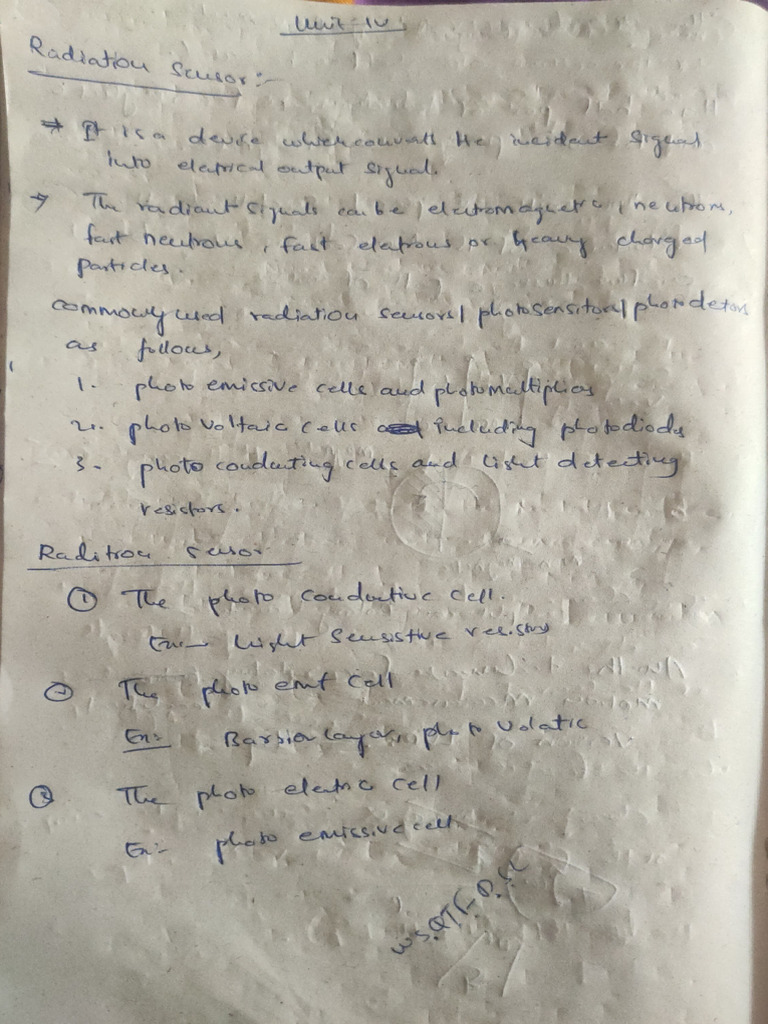 Unit-IV
Radiation Sensor:-
⇒ It is a device which converts the incident signal
into eletrical output signal.
→ The radiant signals can be electromagnetic, neutrons,
fast neutrons, fast eletrons or heavy charged
particles.
commonly used radiation sensors/photosensitors/photodetors
as follows,
1. photo emissive cells and photomultipliers
2. photo voltaic cells including photodiods
3. photo conducting cells and light detecting
resistors.
Radition sensor
① The photo conductive cell.
Ex:- Light Sensistive resistor
② The photo emf cell
Ex:- Barrier layer, photo volatic
③ The photo eletric cell
Ex:- photo emissive cell.